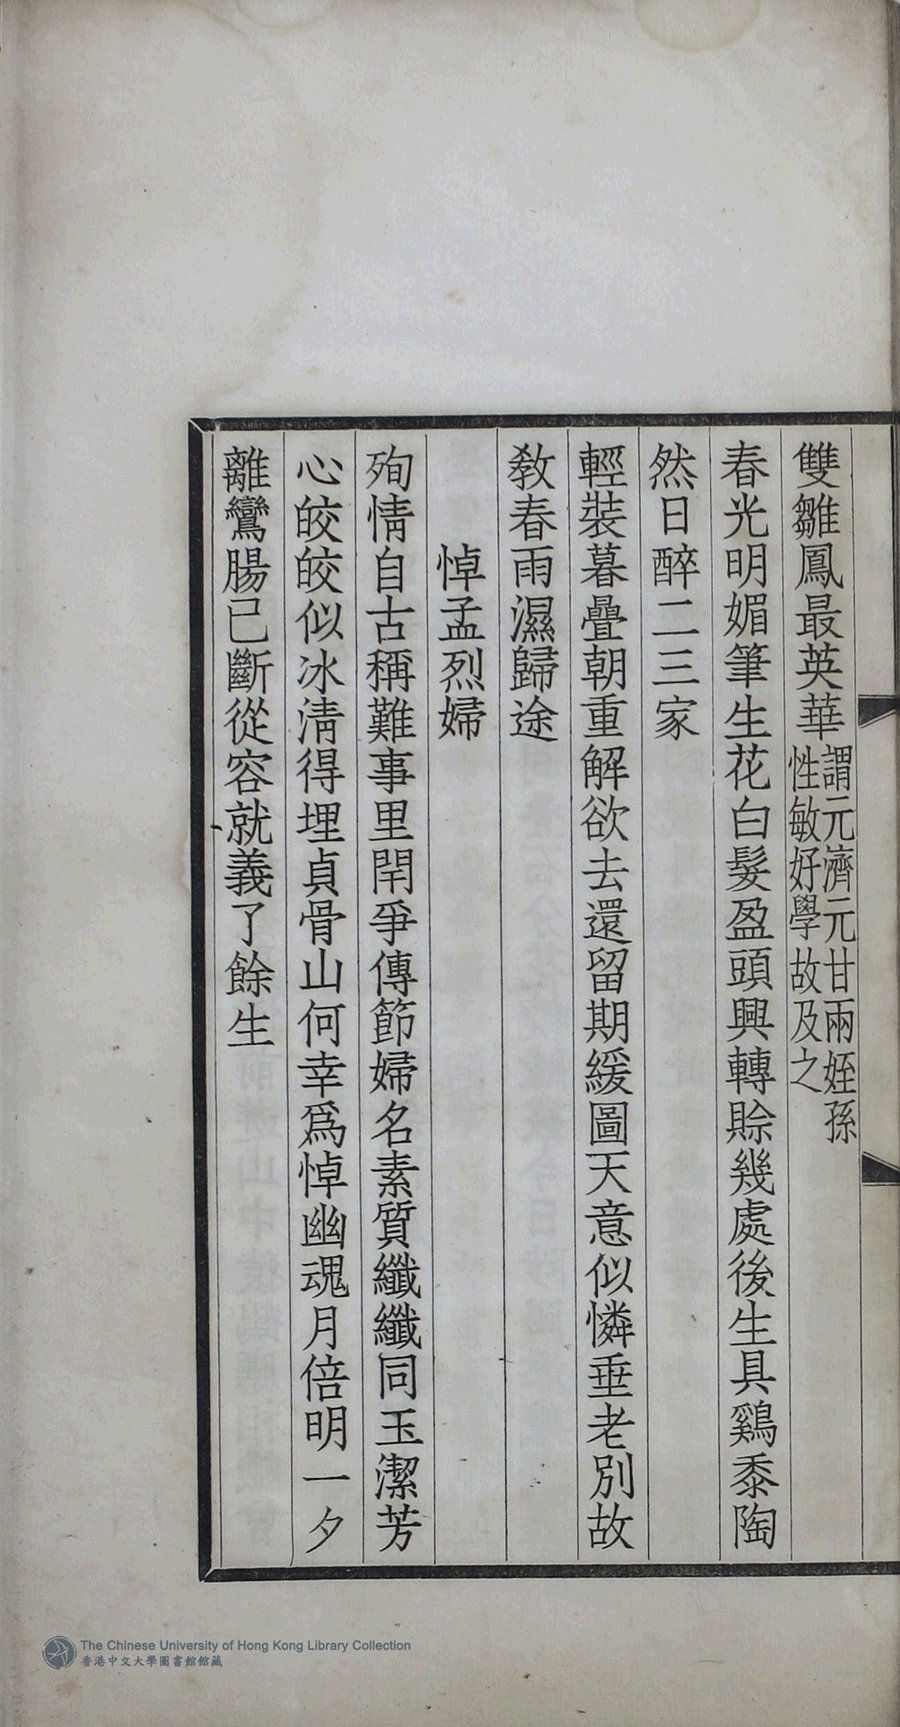 雙雛鳳最英華謂元濟元甘兩姪孫
性敏好學故及之
春光明媚筆生花白髮盈頭興轉賒幾處後生具鷄黍陶
然日醉二三家
輕裝暮疊朝重解欲去還留期緩圖天意似憐垂老別故
敎春雨濕歸途
悼孟烈婦
殉情自古稱難事里閈爭傳節婦名素質纖纖同玉潔芳
心皎皎似冰淸得埋貞骨山何幸爲悼幽魂月倍明一夕
離鸞腸已斷從容就義了餘生
The Chinese University of Hong Kong Library Collection
香港中文大學圖書館館藏